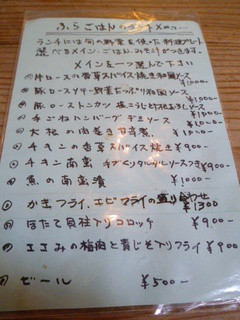 ふらごはんのランチメニュー
ランチには旬の野菜を使った料理プレート
選べるメイン、ごはん、みそ汁がつきます。
メインを一つ選んで下さい
牛ロースの香草スパイス焼き和風ソース ¥1000-
豚ロースソテー野菜たっぷり和風ソース ¥1000-
豚ローストンカツ 塩こうじと ソース ¥1000-
手ごねハンバーグ デミソース ¥1000-
大根の肉巻き 煮 ¥1000-
チキンの香草スパイス焼き ¥900-
チキン南蛮 手づくりタルタルソースつき ¥900-
魚の南蛮漬 ¥1000-
かきフライ、エビフライの盛り合わせ ¥1300
ほたて貝柱入りコロッケ ¥900-
ささみの梅肉と青じそ入りフライ ¥900
ビール ¥500-